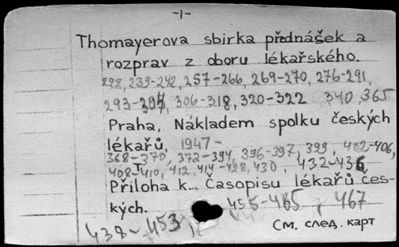 -1-
Thomayerova sbirka přednášek a
rozprav z oboru lékařského.
228, 239-242, 257-266, 269-270, 276-291,
293-304, 306-318, 320-322 340 365
Praha, Nákladem spolku českých
lékařů, 1947-
368-370, 372-394, 396-397, 399, 402-406,
408-410, 412, 414-428, 430, 432-436,
Příloha k... Časopisu lékařů čes-
kých. 455-465, 467
438-453,
См. след. карт